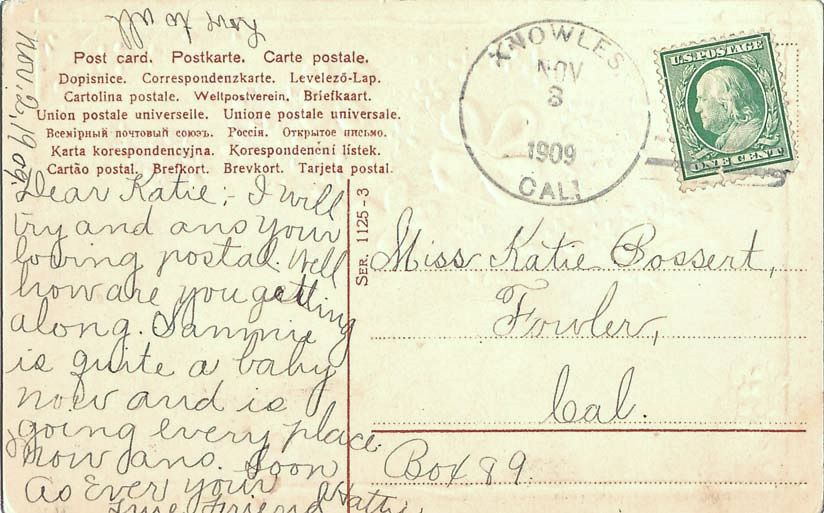 love to all
Nov. 2, 1909.
Post card. Postkarte. Carte postale.
Dopisnice. Correspondenzkarte. Levelező-Lap.
Cartolina postale. Weltpostverein. Briefkaart.
Union postale universelle. Unione postale universale.
Всемірный почтовый союзъ. Россія. Открытое письмо.
Karta korespondencyjna. Korespondenční lístek.
Cartão postal. Brefkort. Brevkort. Tarjeta postal.
KNOWLES
NOV
3
1909
CAL.
U.S. POSTAGE
ONE CENT
Dear Katie; - I will
try and ans your
loving postal. Well
how are you getting
along. Sammie
is quite a baby
now and is
going every place
now ans. soon
As Ever your
True Friend Hattie
SER. 1125-3
Miss Katie Bossert,
Fowler,
Cal.
Box 89